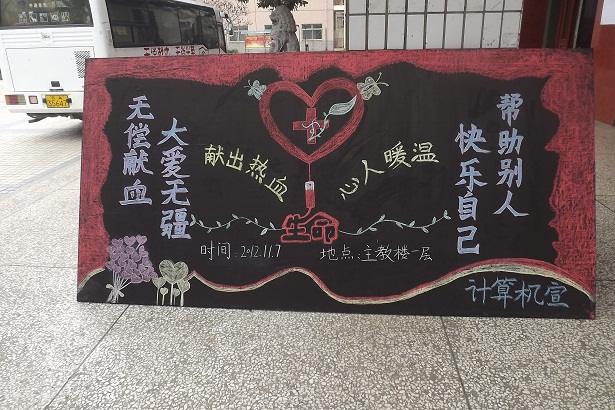 无偿献血
大爱无疆
献出热血
温暖人心
帮助别人
快乐自己
生命
时间:2012.11.7
地点:主教楼一层
计算机宣